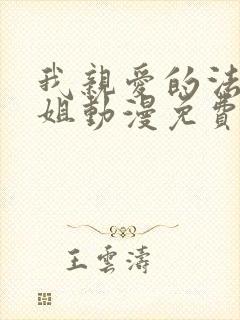 我親愛的法
姐動漫免費
王雲濤